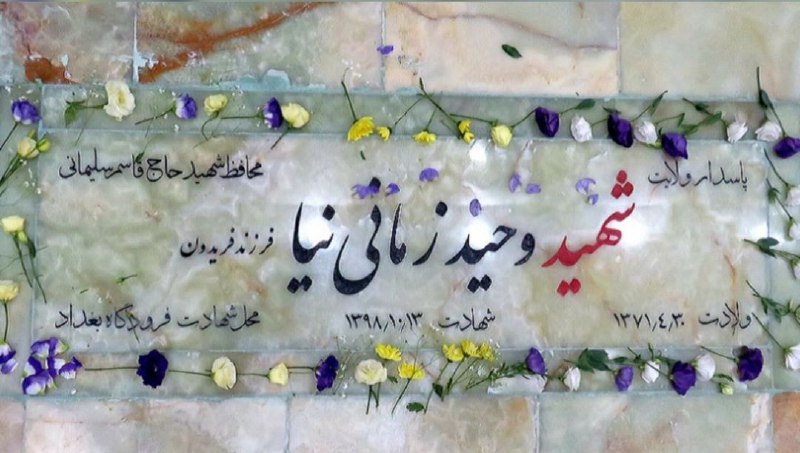 پاسدار ولایت محافظ شهید حاج قاسم سلیمانی
شهید وحید زمانی نیا فرزند فریدون
ولادت ۱۳۷۱٫۴٫۳۰ شهادت ۱۳۹۸٫۱۰٫۱۳ محل شهادت فرودگاه بغداد